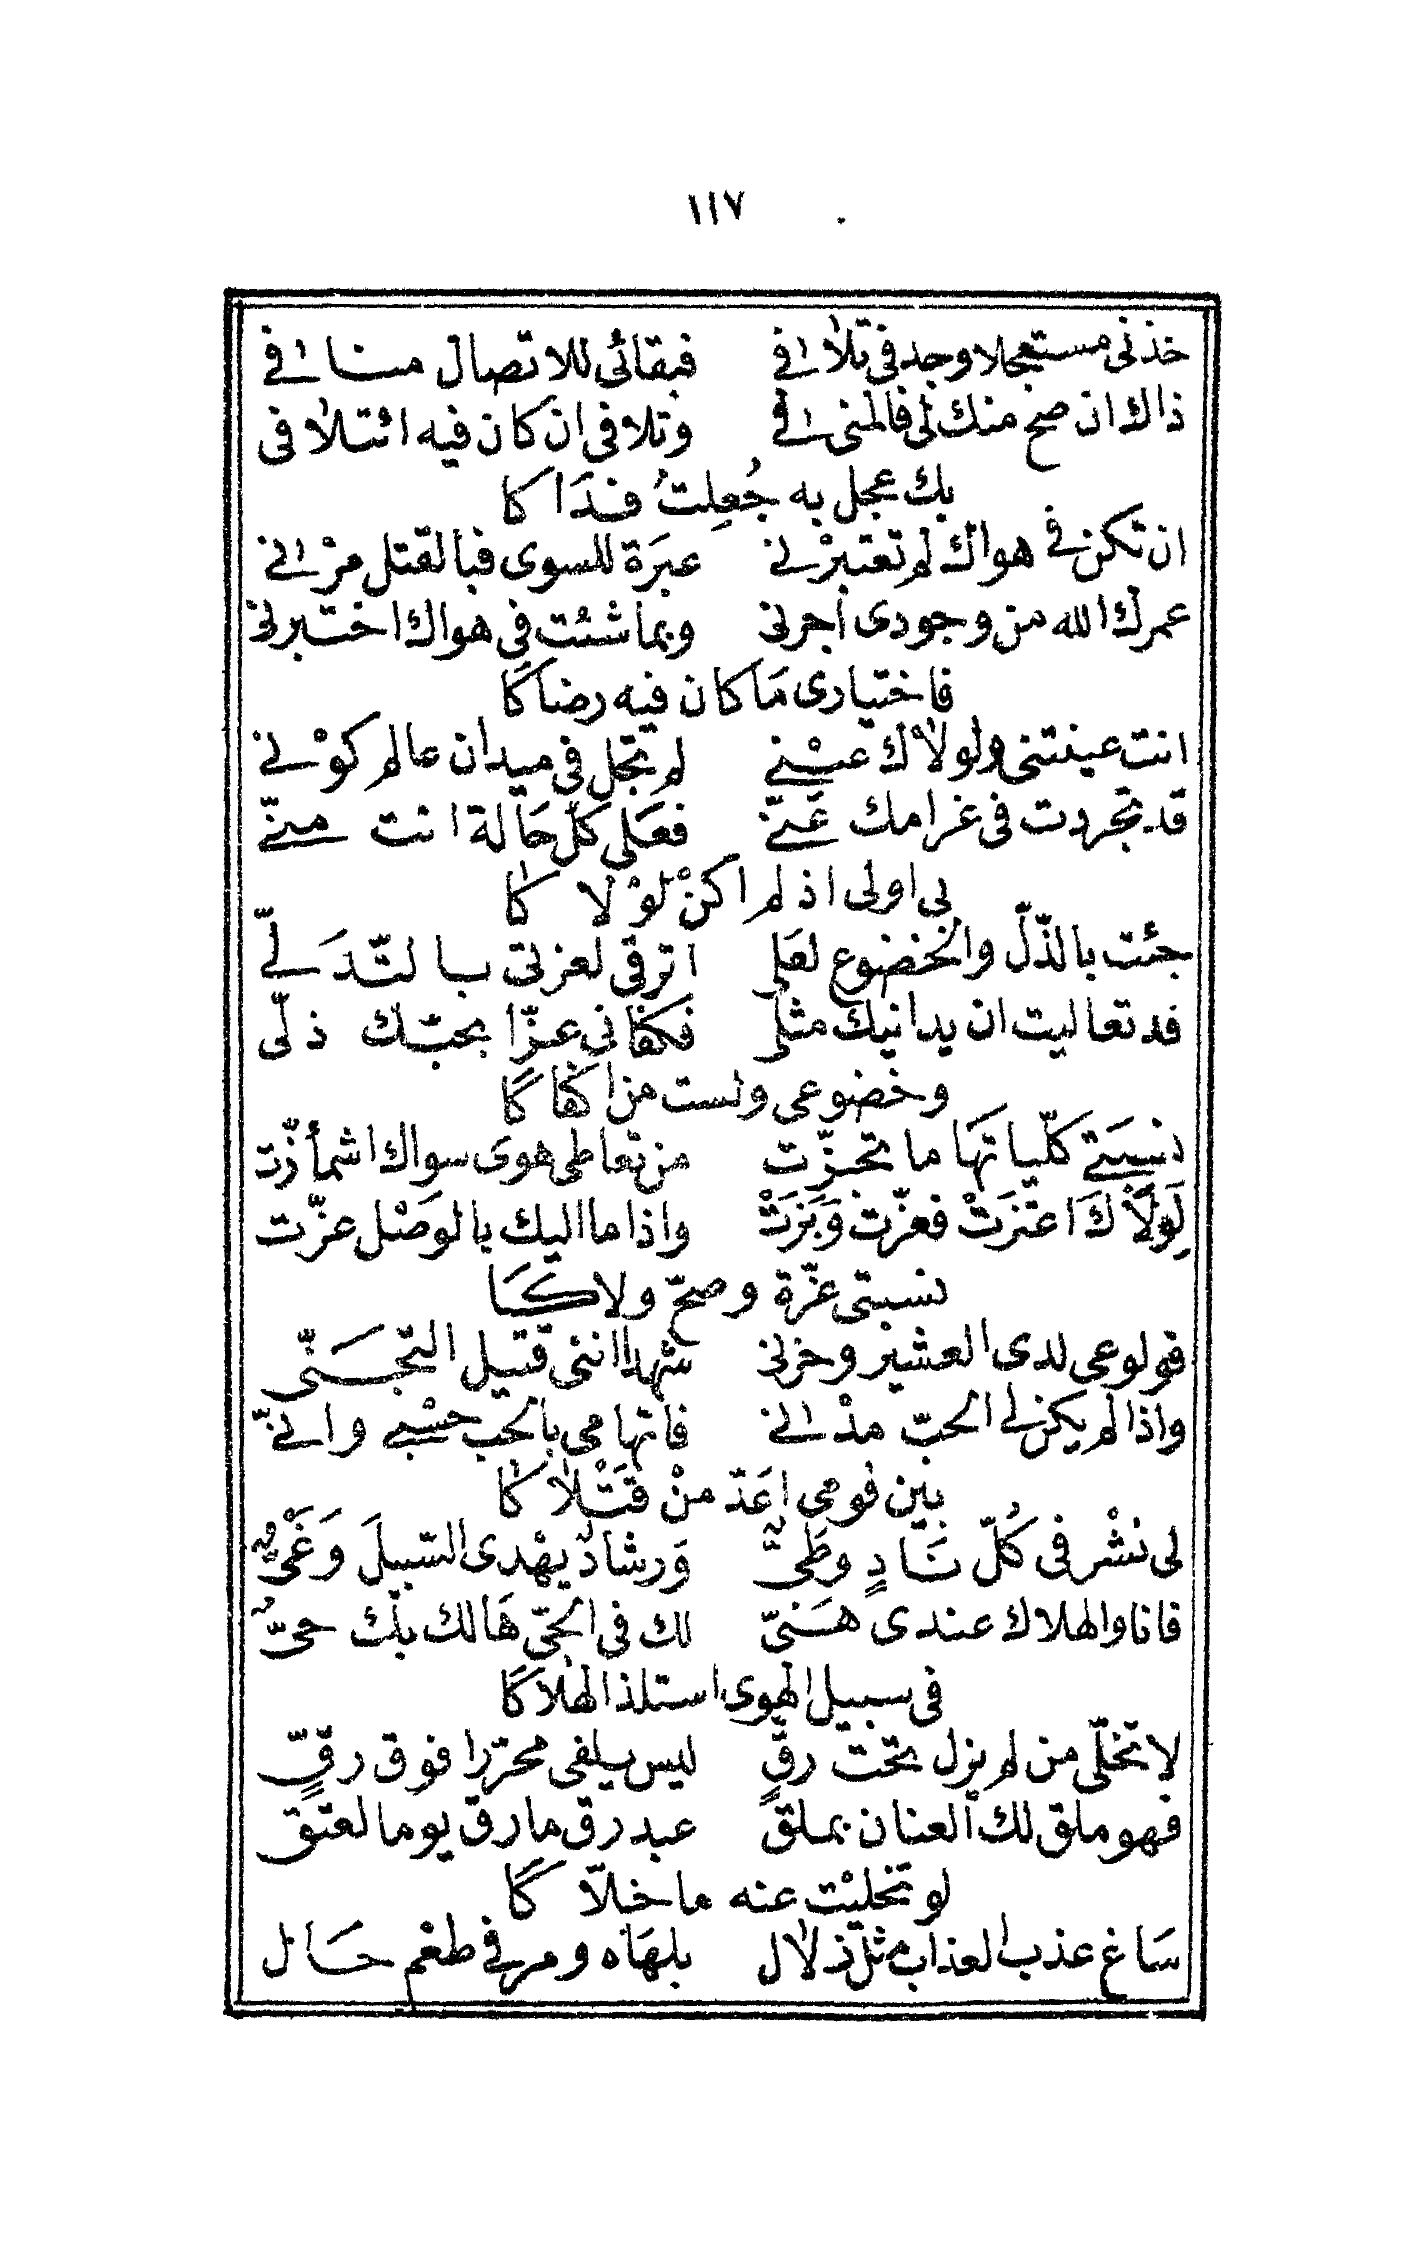 ١١٧
خذنى مستعجلا وجد فى تلافى فبقائى للاتصال منافى
ذاك ان صح منك لى فالمنى افى وتلافى ان كان فيه ائتلافى
بك عجل به جُعِلتُ فدَاكا
ان تكن فى هواك لم تعتبرْنى عبرَة للسوى فبالقتل مرْنى
عمرك الله من وجودى أجرنى وبما شئت فى هواك اختبرنى
فاختيارى مَاكان فيه رضاكَا
انت عينتنى ولولاك عينى لم تجل فى ميدان عالم كوْنى
قد تجردت فى غرامك عَنّى فعَلى كلّ حَالة انت منّى
بى اولى اذ لم اكنْ لوْلاكا
جئت بالذّلّ والخضوع لعَلى اترقى لعزتى بالتّدَلّى
قد تعاليت ان يدانيك مثلى فكفانى عزّا بحبّك ذلّى
وخضوعى ولست من اكفاكَا
نسبَتى كلّياتهَا ما تحزّت من تعاطى هوى سواك اشمأزّت
لَولاكَ اعتزَتْ فعزّت وَبَزَتْ واذا ما اليك بالوَصْل عزّت
نسبتى عزّة وصحّ ولاكَا
فولوعى لدى العشير وخزنى شهدا اننى قتيل التجَنّى
واذا لم يكن لى الحبّ مدْانى فاتهامى بالحب حسْبى وانّى
بين قومى اعَدّ منْ قَتْلاكا
لى نشْر فى كُلّ نَادٍ وطَىٍّ وَرشادٌ يهْدى السّبيلَ وَغَىٌّ
فانا والهلاك عندى هَنىّ لك فى الحىّ هَالك بك حىٌّ
فى سبيل الهوى استلذ الهلاكَا
لا تخلّى من لم يزل تحت رقٍّ ليس يلفى محرّرا فوق رقٍّ
فهو ملق لك العنان بملق عبد رق مارق يوما لعتق
لو تخليْت عنه ما خلّاكَا
سَاغ عذب العذاب مثل ذلال بلهَاه ومر فى طعْم حَال